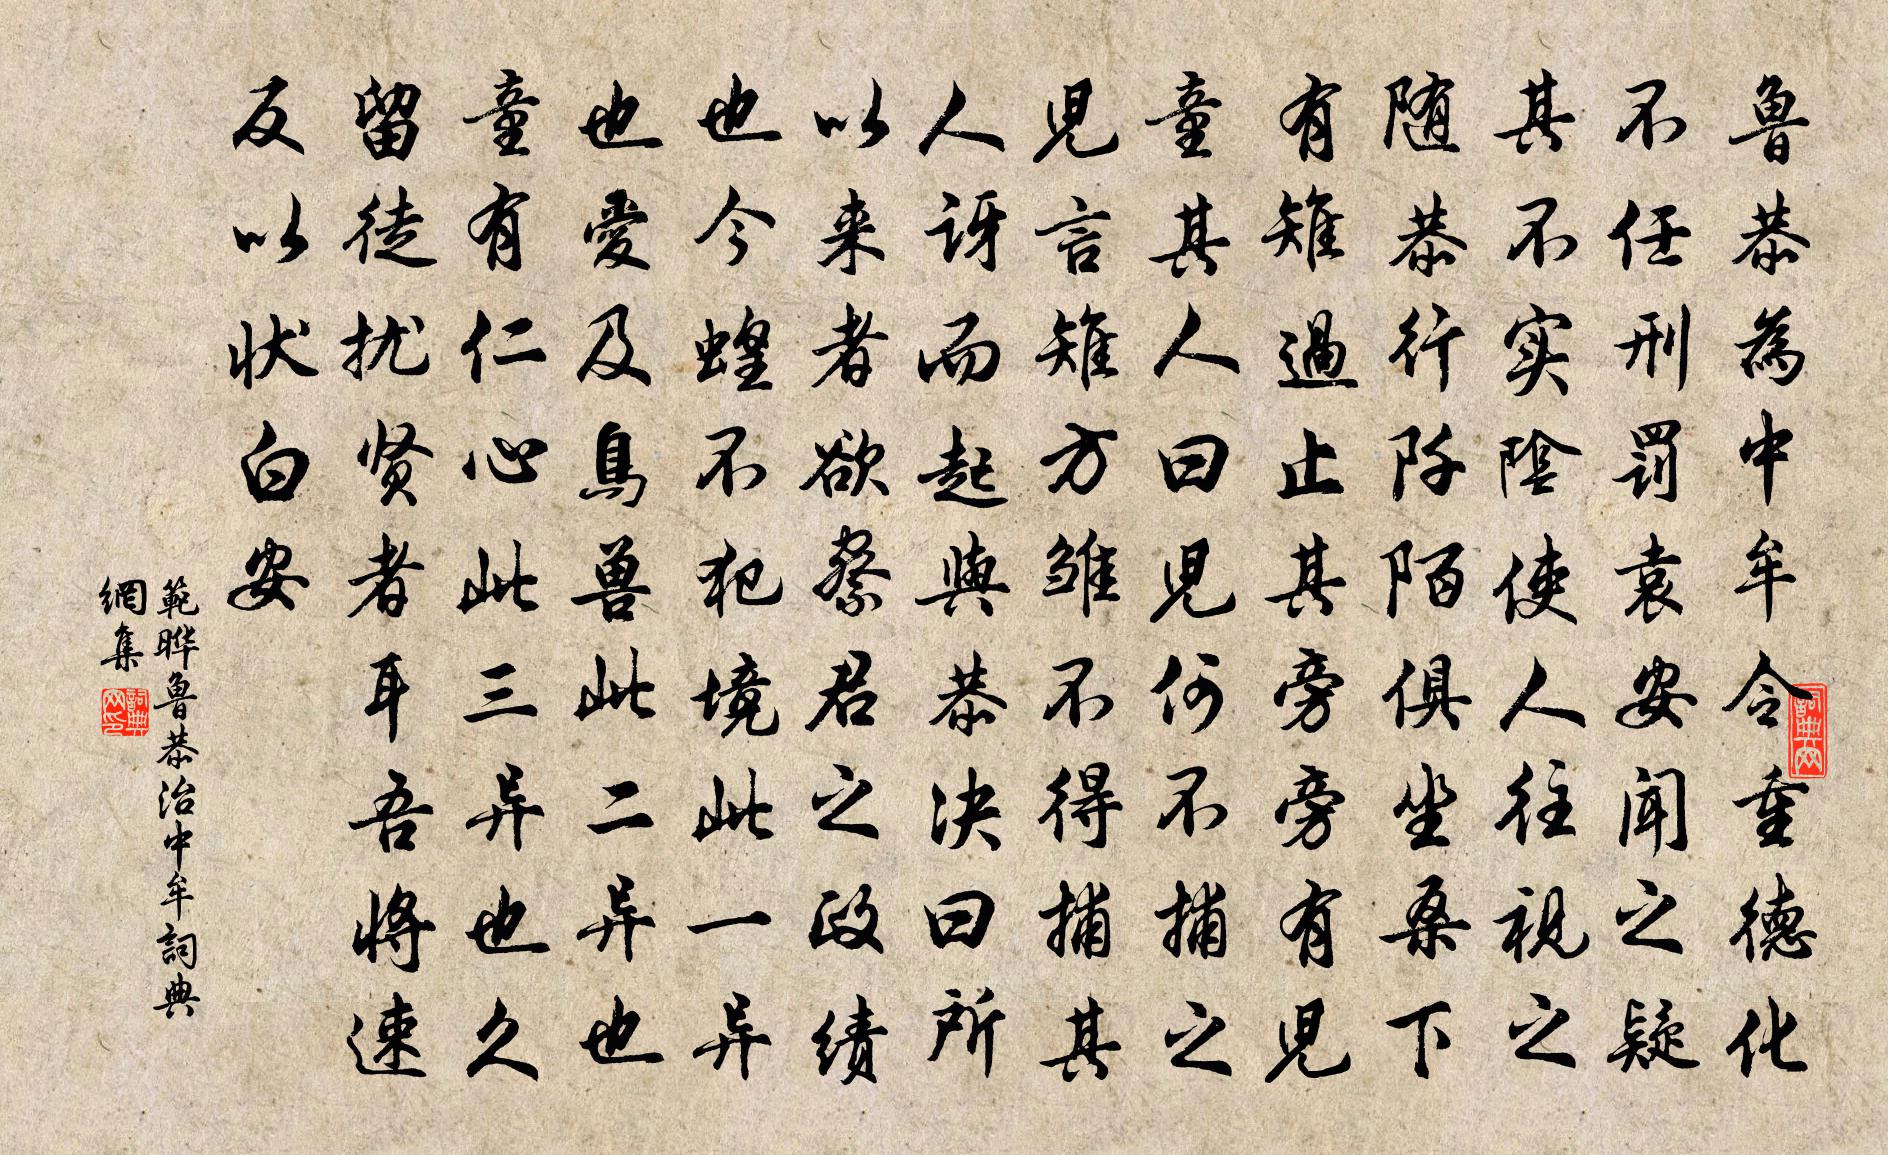 鲁恭為中牟令重德化
不任刑罚袁安闻之疑
其不实陰使人往视之
随恭行阡陌俱坐桑下
有雉過止其旁旁有児
童其人曰児何不捕之
児言雉方雏不得捕其
人讶而起與恭决曰所
以来者欲察君之政绩
也今蝗不犯境此一异
也爱及鳥兽此二异也
童有仁心此三异也久
留徒扰贤者耳吾将速
反以状白安
範晔鲁恭治中牟詞典
網集
詞典网
詞典网印